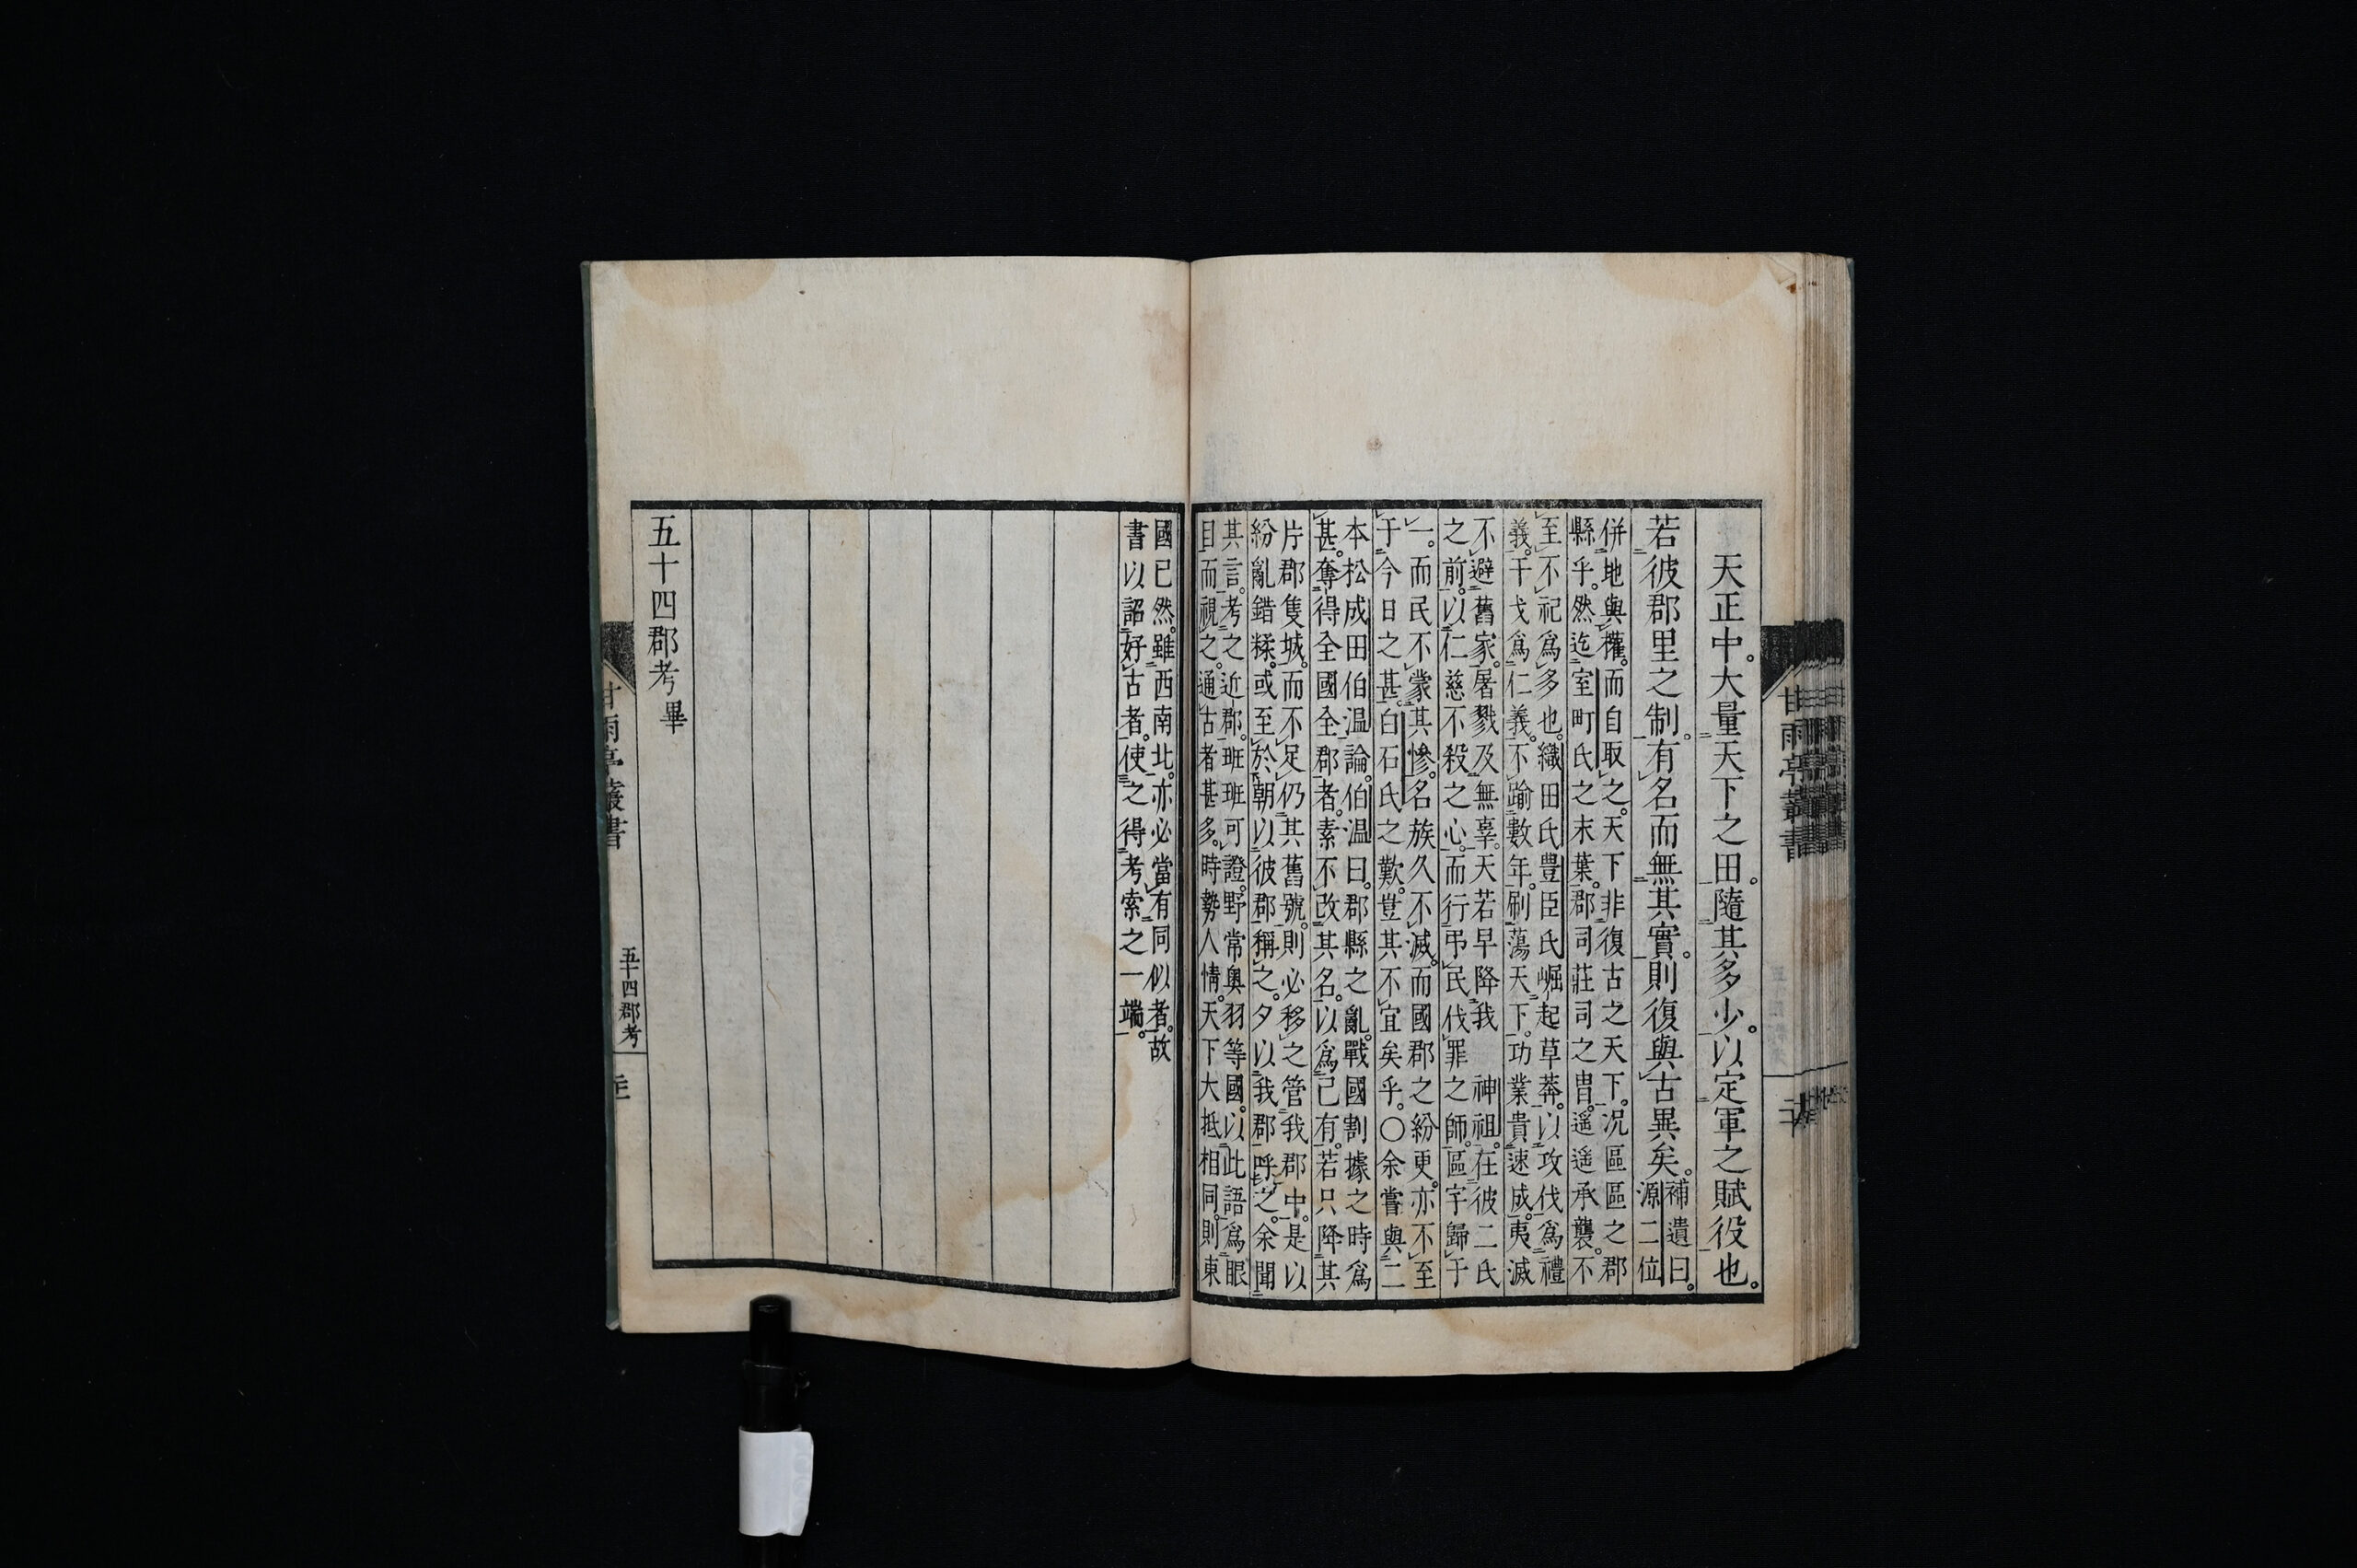 天正中。大量天下之田。隨其多少。以定軍之賦役也。
若彼郡里之制。有名而無其實。則復與古異矣。補遺曰。
源二位
併地與權。而自取之。天下非復古之天下。况區區之郡
縣乎。然迄室町氏之末葉。郡司莊司之冑。遥遥承襲。不
至不祀爲多也。織田氏豊臣氏崛起草莽。以攻伐爲禮
義。干戈爲仁義。不踰數年。刷蕩天下。功業貴速成。夷滅
不避舊家。屠戮及無辜。天若早降我 神祖。在彼二氏
之前。以仁慈不殺之心。而行弔民伐罪之師。區宇歸于
一。而民不蒙其慘。名族久不滅。而國郡之紛更。亦不至
于今日之甚。白石氏之歎。豈其不宜矣乎。○余嘗與二
本松成田伯温論。伯温曰。郡縣之亂。戰國割據之時爲
甚。奪得全國全郡者。素不改其名。以爲己有。若只降其
片郡隻城。而不足仍其舊號。則必移之管我郡中。是以
紛亂錯糅。或至於朝以彼郡稱之。夕以我郡呼之。余聞
其言。考之近郡。班班可證。野常奥羽等國。以此語爲眼
目而視之。通古者甚多。時勢人情。天下大抵相同。則東
國已然。雖西南北。亦必當有同似者。故
書以詔好古者。使之得考索之一端。
五十四郡考畢
甘雨亭叢書
五十四郡考
甘雨亭叢書